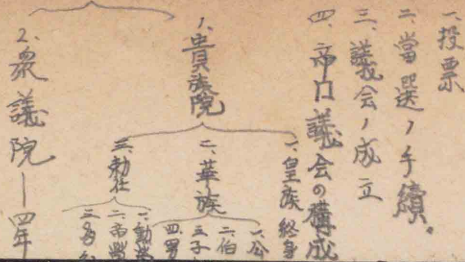 一、投票
二、當選ノ手續。
三、議会ノ成立
四、帝口議会の構成
1、貴族院
一、皇族 終身
二、華族
一、公
二伯
三子
四、男
三、勅任
一、勳
二、帝
三、多
2、衆議院―四年